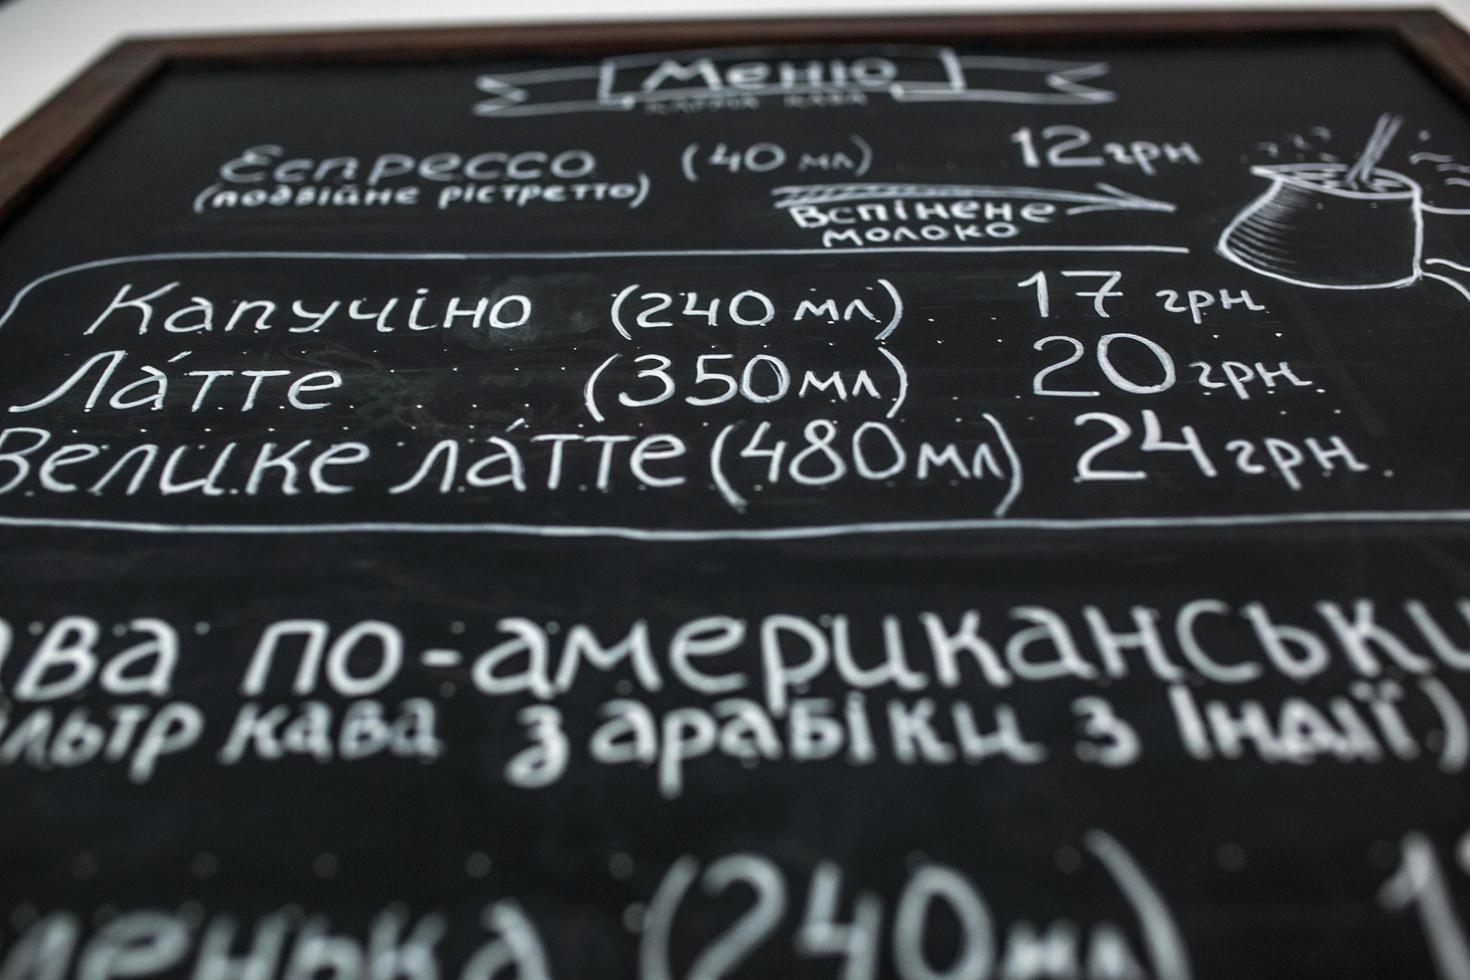 Меню
Еспрессо (40 мл) 12 грн
(подвійне рістретто)
Вспінене
молоко
Капучіно (240 мл) 17 грн
Ла́тте (350 мл) 20 грн.
Велике ла́тте (480 мл) 24 грн.
по-американськи
кава з арабіки з Індії)
(240 мл)